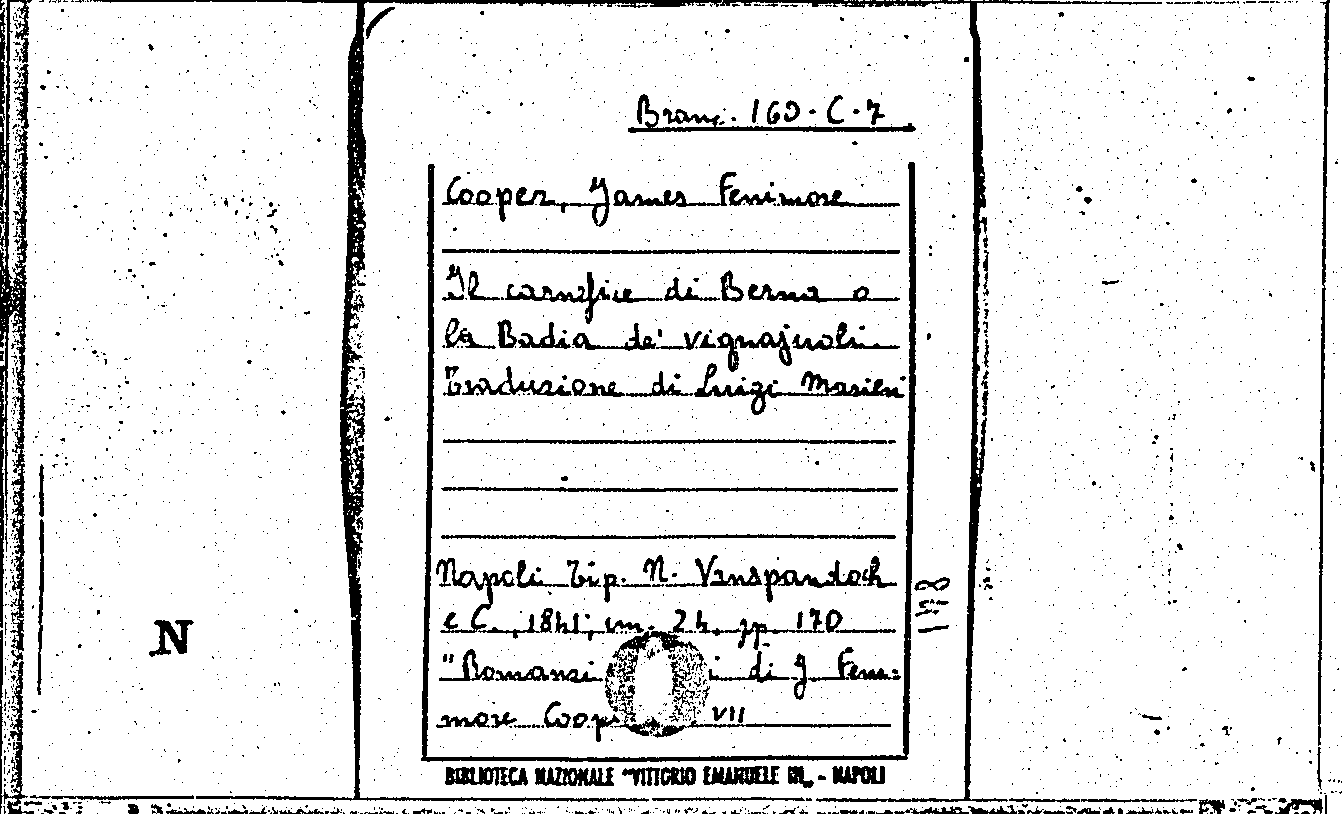 Branc. 160. C. 7
Cooper, James Fenimore
Il carnefice di Berna o
la Badia de' vignajuoli.
Traduzione di Luigi Masieri
Napoli Tip. N. Vanspandoch
e C., 1841, im. 24. pp. 170
"Romanzi di J. Feni-
more VII
BIBLIOTECA NAZIONALE "VITTORIO EMANUELE III„ - NAPOLI
N